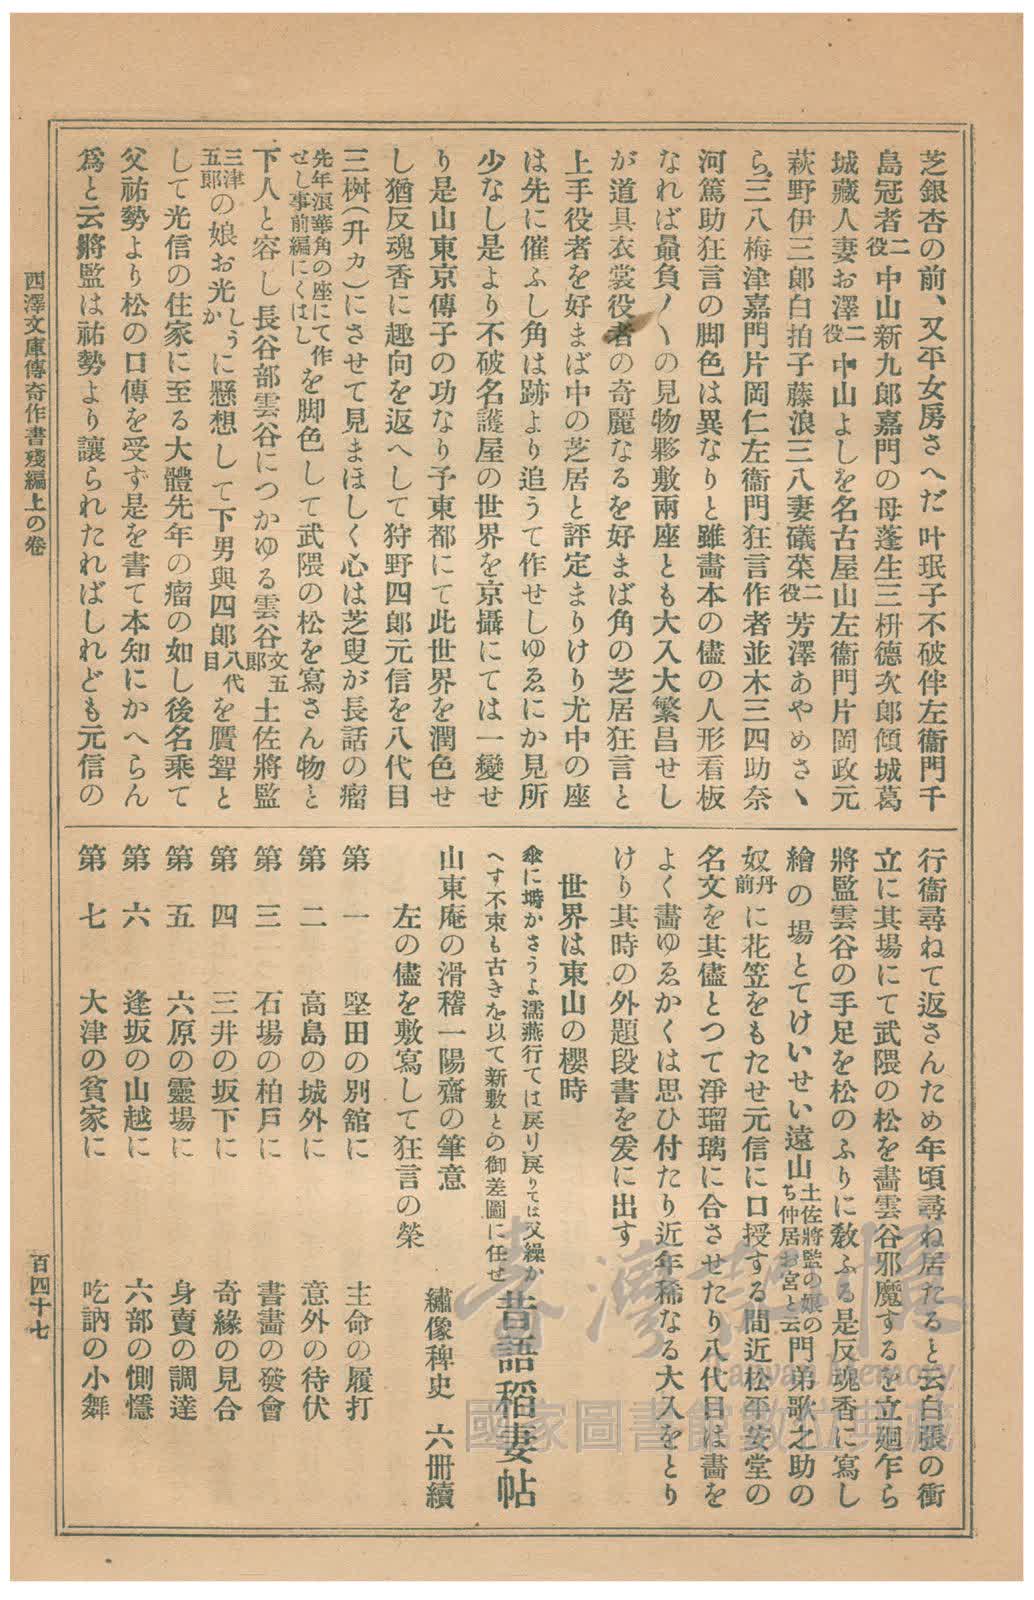 芝銀杏の前、又平女房さへだ叶珉子不破伴左衞門千
島冠者二役中山新九郎嘉門の母蓬生三枡德次郎傾城葛
城藏人妻お澤二役中山よしを名古屋山左衞門片岡政元
萩野伊三郎白拍子藤浪三八妻礒菜二役芳澤あやめさゝ
ら三八梅津嘉門片岡仁左衞門狂言作者並木三四助奈
河篤助狂言の脚色は異なりと雖畵本の儘の人形看板
なれば贔負〳〵の見物夥敷兩座とも大入大繁昌せし
が道具衣裳役者の奇麗なるを好まば角の芝居狂言と
上手役者を好まば中の芝居と評定まりけり尤中の座
は先に催ふし角は跡より追うて作せしゆゑにか見所
少なし是より不破名護屋の世界を京攝にては一變せ
り是山東京傳子の功なり予東都にて此世界を潤色せ
し猶反魂香に趣向を返へして狩野四郎元信を八代目
三桝(升カ)にさせて見まほしく心は芝叟が長話の瘤
先年浪華角の座にて作せし事前編にくはしを脚色して武隈の松を寫さん物と
下人と容し長谷部雲谷につかゆる雲谷文五郎土佐將監
三津五郎の娘お光しうかに懸想して下男與四郎八代目を贋聟と
して光信の住家に至る大體先年の瘤の如し後名乘て
父祐勢より松の口傳を受ず是を書て本知にかへらん
爲と云將監は祐勢より讓られたればしれども元信の
行衞尋ねて返さんため年頃尋ね居たると云白張の衝
立に其場にて武隈の松を畵雲谷邪魔するを立廻乍ら
將監雲谷の手足を松のふりに敎ふる是反魂香に寫し
繪の場とてけいせい遠山土佐將監の娘のち仲居お宮と云門弟歌之助の
奴丹前に花笠をもたせ元信に口授する間近松平安堂の
名文を其儘とつて淨瑠璃に合させたり八代目は畵を
よく畵ゆゑかくは思ひ付たり近年稀なる大入をとり
けり其時の外題段書を爰に出す
世界は東山の櫻時
傘に塒かさうよ濡燕行ては戻り戾りては又繰か
へす不束も古きを以て新敷との御差圖に任せ
昔語稻妻帖
山東庵の滑稽一陽齋の筆意
繡像稗史 六冊續
左の儘を敷寫して狂言の榮
第一 堅田の別舘に 主命の履打
第二 高島の城外に 意外の待伏
第三 石場の柏戶に 書畵の發會
第四 三井の坂下に 奇緣の見合
第五 六原の靈場に 身賣の調達
第六 逢坂の山越に 六部の惻憶
第七 大津の貧家に 吃訥の小舞
西澤文庫傳奇作書殘編上の卷
百四十七
臺灣記憶
Taiwan Memory
國家圖書館數位典藏